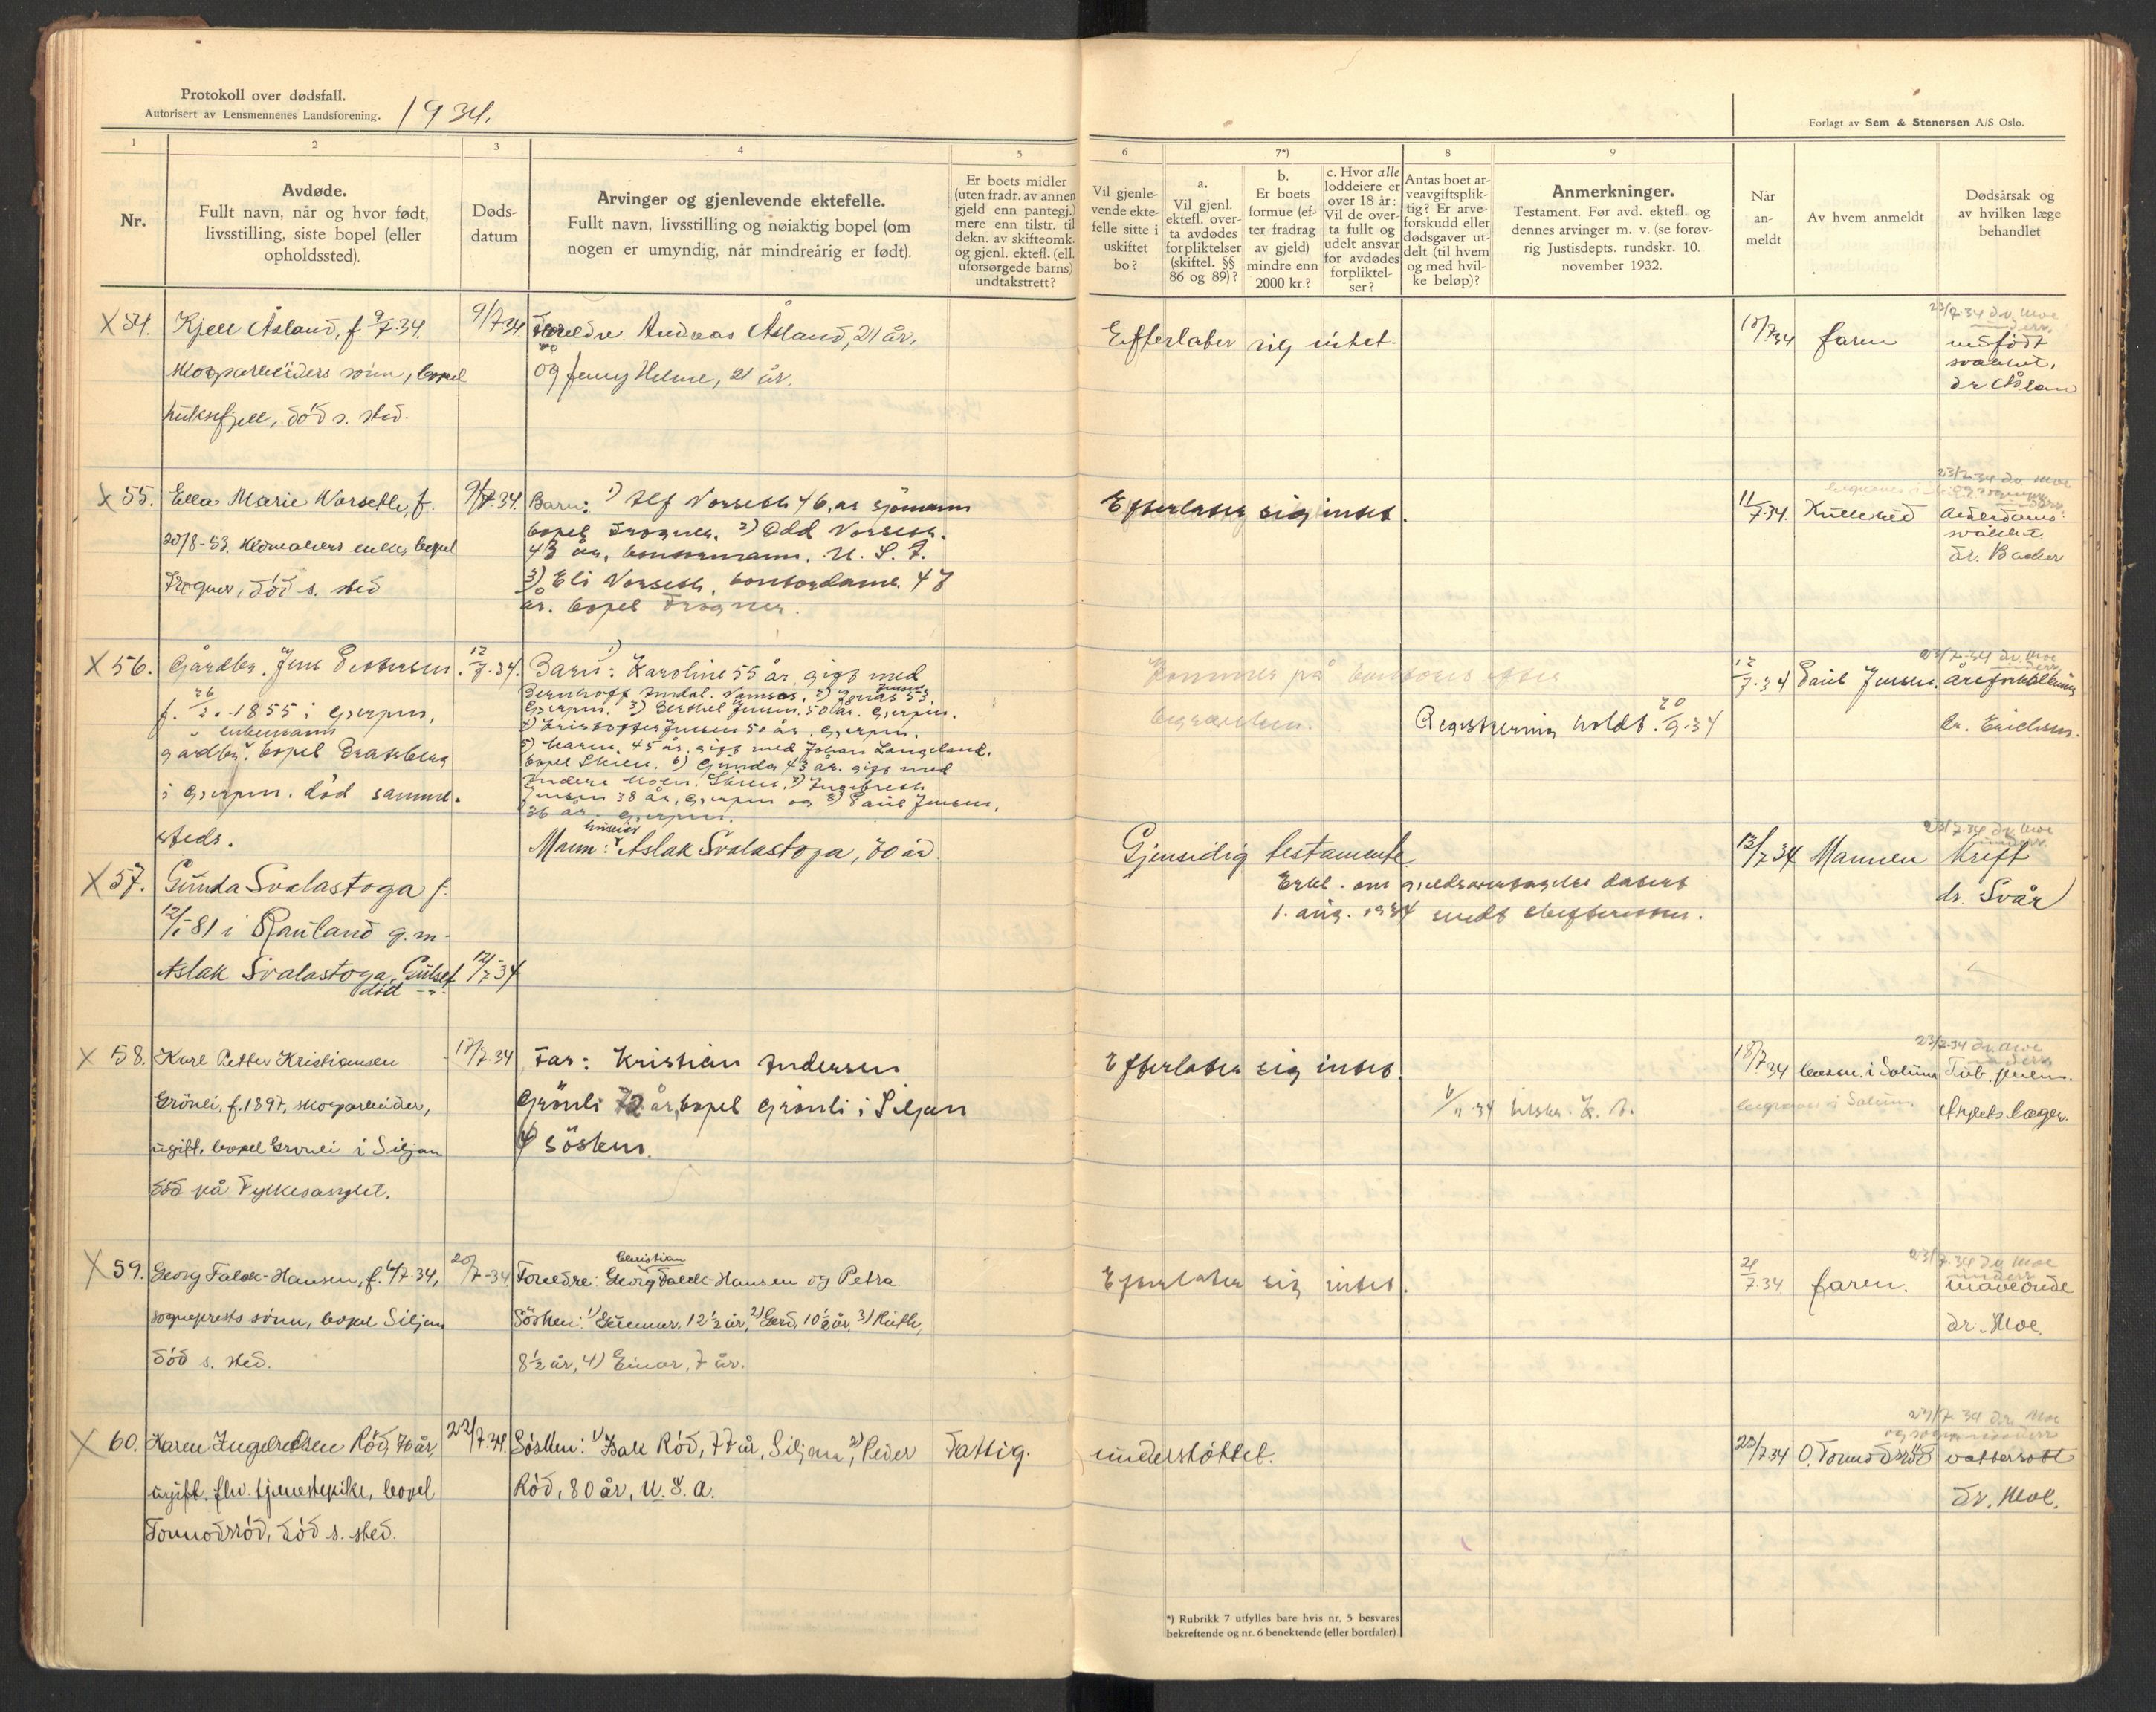 Protokoll over dødsfall.
Autorisert av Lensmennenes Landsforening. 1934.
Forlagt av Sem & Stenersen A/S Oslo.
1 2 3 4 5 6 7*) 8 9
Nr.
Avdøde.
Fullt navn, når og hvor født,
livsstilling, siste bopel (eller
opholdssted).
Døds-
datum
Arvinger og gjenlevende ektefelle.
Fullt navn, livsstilling og nøiaktig bopel (om
nogen er umyndig, når mindreårig er født).
Er boets midler
(uten fradr. av annen
gjeld enn pantegj.)
mere enn tilstr. til
dekn. av skifteomk.
og gjenl. ektefl. (ell.
uforsørgede barns)
undtakstrett?
Vil gjenle-
vende ekte-
felle sitte i
uskiftet
bo?
a.
Vil gjenl.
ektefl. over-
ta avdødes
forpliktelser
(skiftel. §§
86 og 89)?
b.
Er boets
formue (ef-
ter fradrag
av gjeld)
mindre enn
2000 kr.?
c. Hvor alle
loddeiere er
over 18 år:
Vil de over-
ta fullt og
udelt ansvar
for avdødes
forpliktel-
ser?
Antas boet ar-
veavgiftsplik-
tig? Er arve-
forskudd eller
dødsgaver ut-
delt (til hvem
og med hvil-
ke beløp)?
Anmerkninger.
Testament. Før avd. ektefl. og
dennes arvinger m. v. (se forøv-
rig Justisdepts. rundskr. 10.
november 1932.
Når
an-
meldt
Av hvem anmeldt
Dødsårsak og
av hvilken læge
behandlet
X 54. Kjell Åsland, f. 9/7-34.
skogarbeiders sønn, bopel
død s. sted.
9/7-34
Foreldre Andreas Åsland, 21 år,
og Jenny Helene, 21 år.
Efterlater sig intet.
10/7-34 faren
23/7-34 dr. Moe
underr.
medfødt
svakhet.
X 55. Ella Marie Norseth, f.
20/8-53. enke, bopel
Frogner, død s. sted
9/7-34.
Barn: 1) Alf Norseth 46, år sjømann
bopel Frogner. 2) Odd Norseth.
43 år, U. S. A.
3) Eli Norseth, kontordame. 47
år. bopel Frogner.
Efterlater sig intet.
11/7-34.
23/7-34 dr. Moe
Alderdoms-
svakhet.
dr. Backer
X 56. Gårdbr. Jens Pettersen.
f. 26/2-1855 i Gjerpen,
enkemann
gårdbr. bopel
i Gjerpen. død samme-
steds.
12/7-34.
Barn: 1) Karoline 55 år, gift med
Bernhoft Namsos, 2) Jonas 53
Gjerpen. 3) Berthel Jensen. 50 år. Gjerpen.
4) Kristoffer Jensen 50 år, Gjerpen.
5) Maren. 45 år, gift med Johan Langeland,
bopel Skien. 6) Gunda 43 år. gift med
Anders Moen. Skien, 7) Ingebreth
Jensen 38 år, Gjerpen og 8) Paul Jensen,
36 år Gjerpen.
Kommer på kontoret efter
begravelsen.
Registrering holdt. 20/9-34
12/7-34 Paul Jensen.
23/7-34 dr. Moe
underr.
åreforkalkning
dr. Erichsen.
X 57. Gunda Svalastoga f.
12/1-81 i Rauland g.m.
Aslak Svalastoga, Gulset
død -"-
12/7-34
Mann: Aslak Svalastoga, 70 år
Gjensidig testamente
Erkl. om gjeldsovertagelse datert
1. aug. 1934 sendt skifteretten.
13/7-34 Mannen
23/7-34 dr. Moe
underr.
Kreft
dr. Svår
X 58. Karl Petter Kristiansen
Grönli, f. 1897, skogarbeider,
ugift, bopel Grönli i Siljan
död på Fylkesasylet.
17/7-34
Far: Kristian Andersen
Grönli 72 år, bopel Grönli i Siljan
4 søsken.
Efterlater sig intet.
18/7-34 i Solum
begraves i Solum.
23/7-34 dr. Moe
underr.
Tub. pulm.
Asylets læge.
X 59. Georg Falck-Hansen, f. 6/7-34,
sogneprests sønn, bopel Siljan
død s. sted.
20/7-34
Christian
Foreldre: Georg Falck-Hansen og Petra
Søsken: 1) Gunnar, 12½ år, 2) Gerd, 10½ år, 3) Ruth,
8½ år, 4) Einar, 7 år.
Efterlater sig intet.
21/7-34 faren.
23/7-34 dr. Moe
underr.
maveonde
dr. Moe.
X 60. Karen Ingebretsen Rød, 76 år,
ugift. fhv. tjenestepike, bopel
Tormodsrød, død s. sted.
22/7-34.
Søsken: 1) Isak Rød, 77 år, Siljan, 2) Peder
Rød, 80 år, U. S. A.
Fattig-
understøttet.
23/7-34 O. Tormodsrød
dr. Moe
vattersott
dr. Moe.
*) Rubrikk 7 utfylles bare hvis nr. 5 besvares
bekreftende og nr. 6 benektende (eller bortfaler)